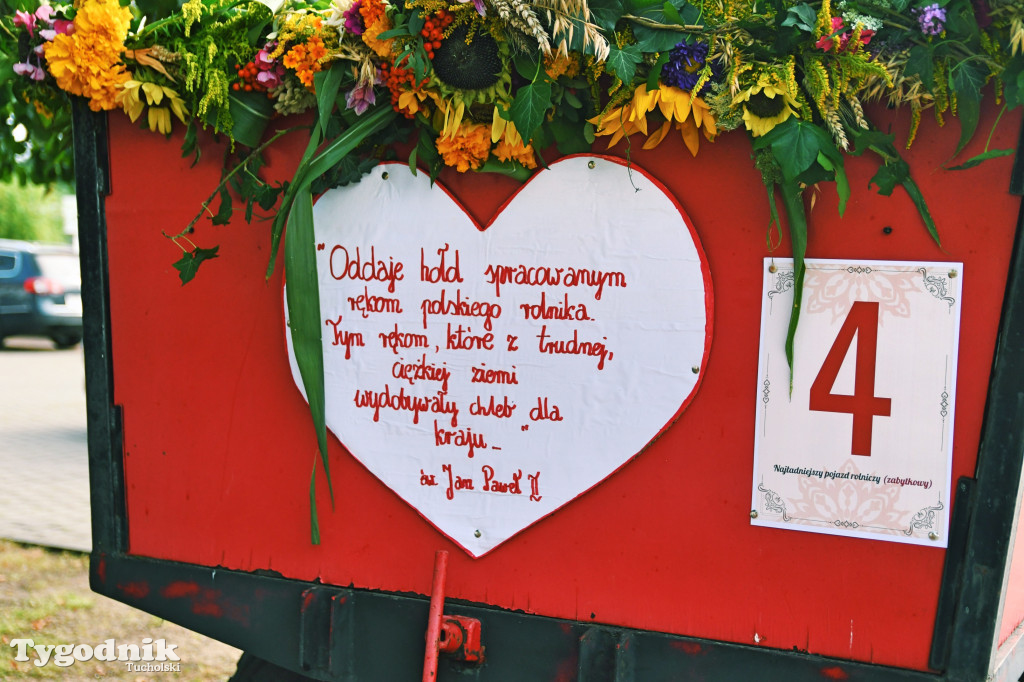 "Oddaje hołd spracowanym
rękom polskiego rolnika.
Tym rękom, które z trudnej,
ciężkiej ziemi
wydobywały chleb dla
kraju..."
św. Jan Paweł II
4
Najładniejszy pojazd rolniczy (zabytkowy)
Tygodnik
Tucholski